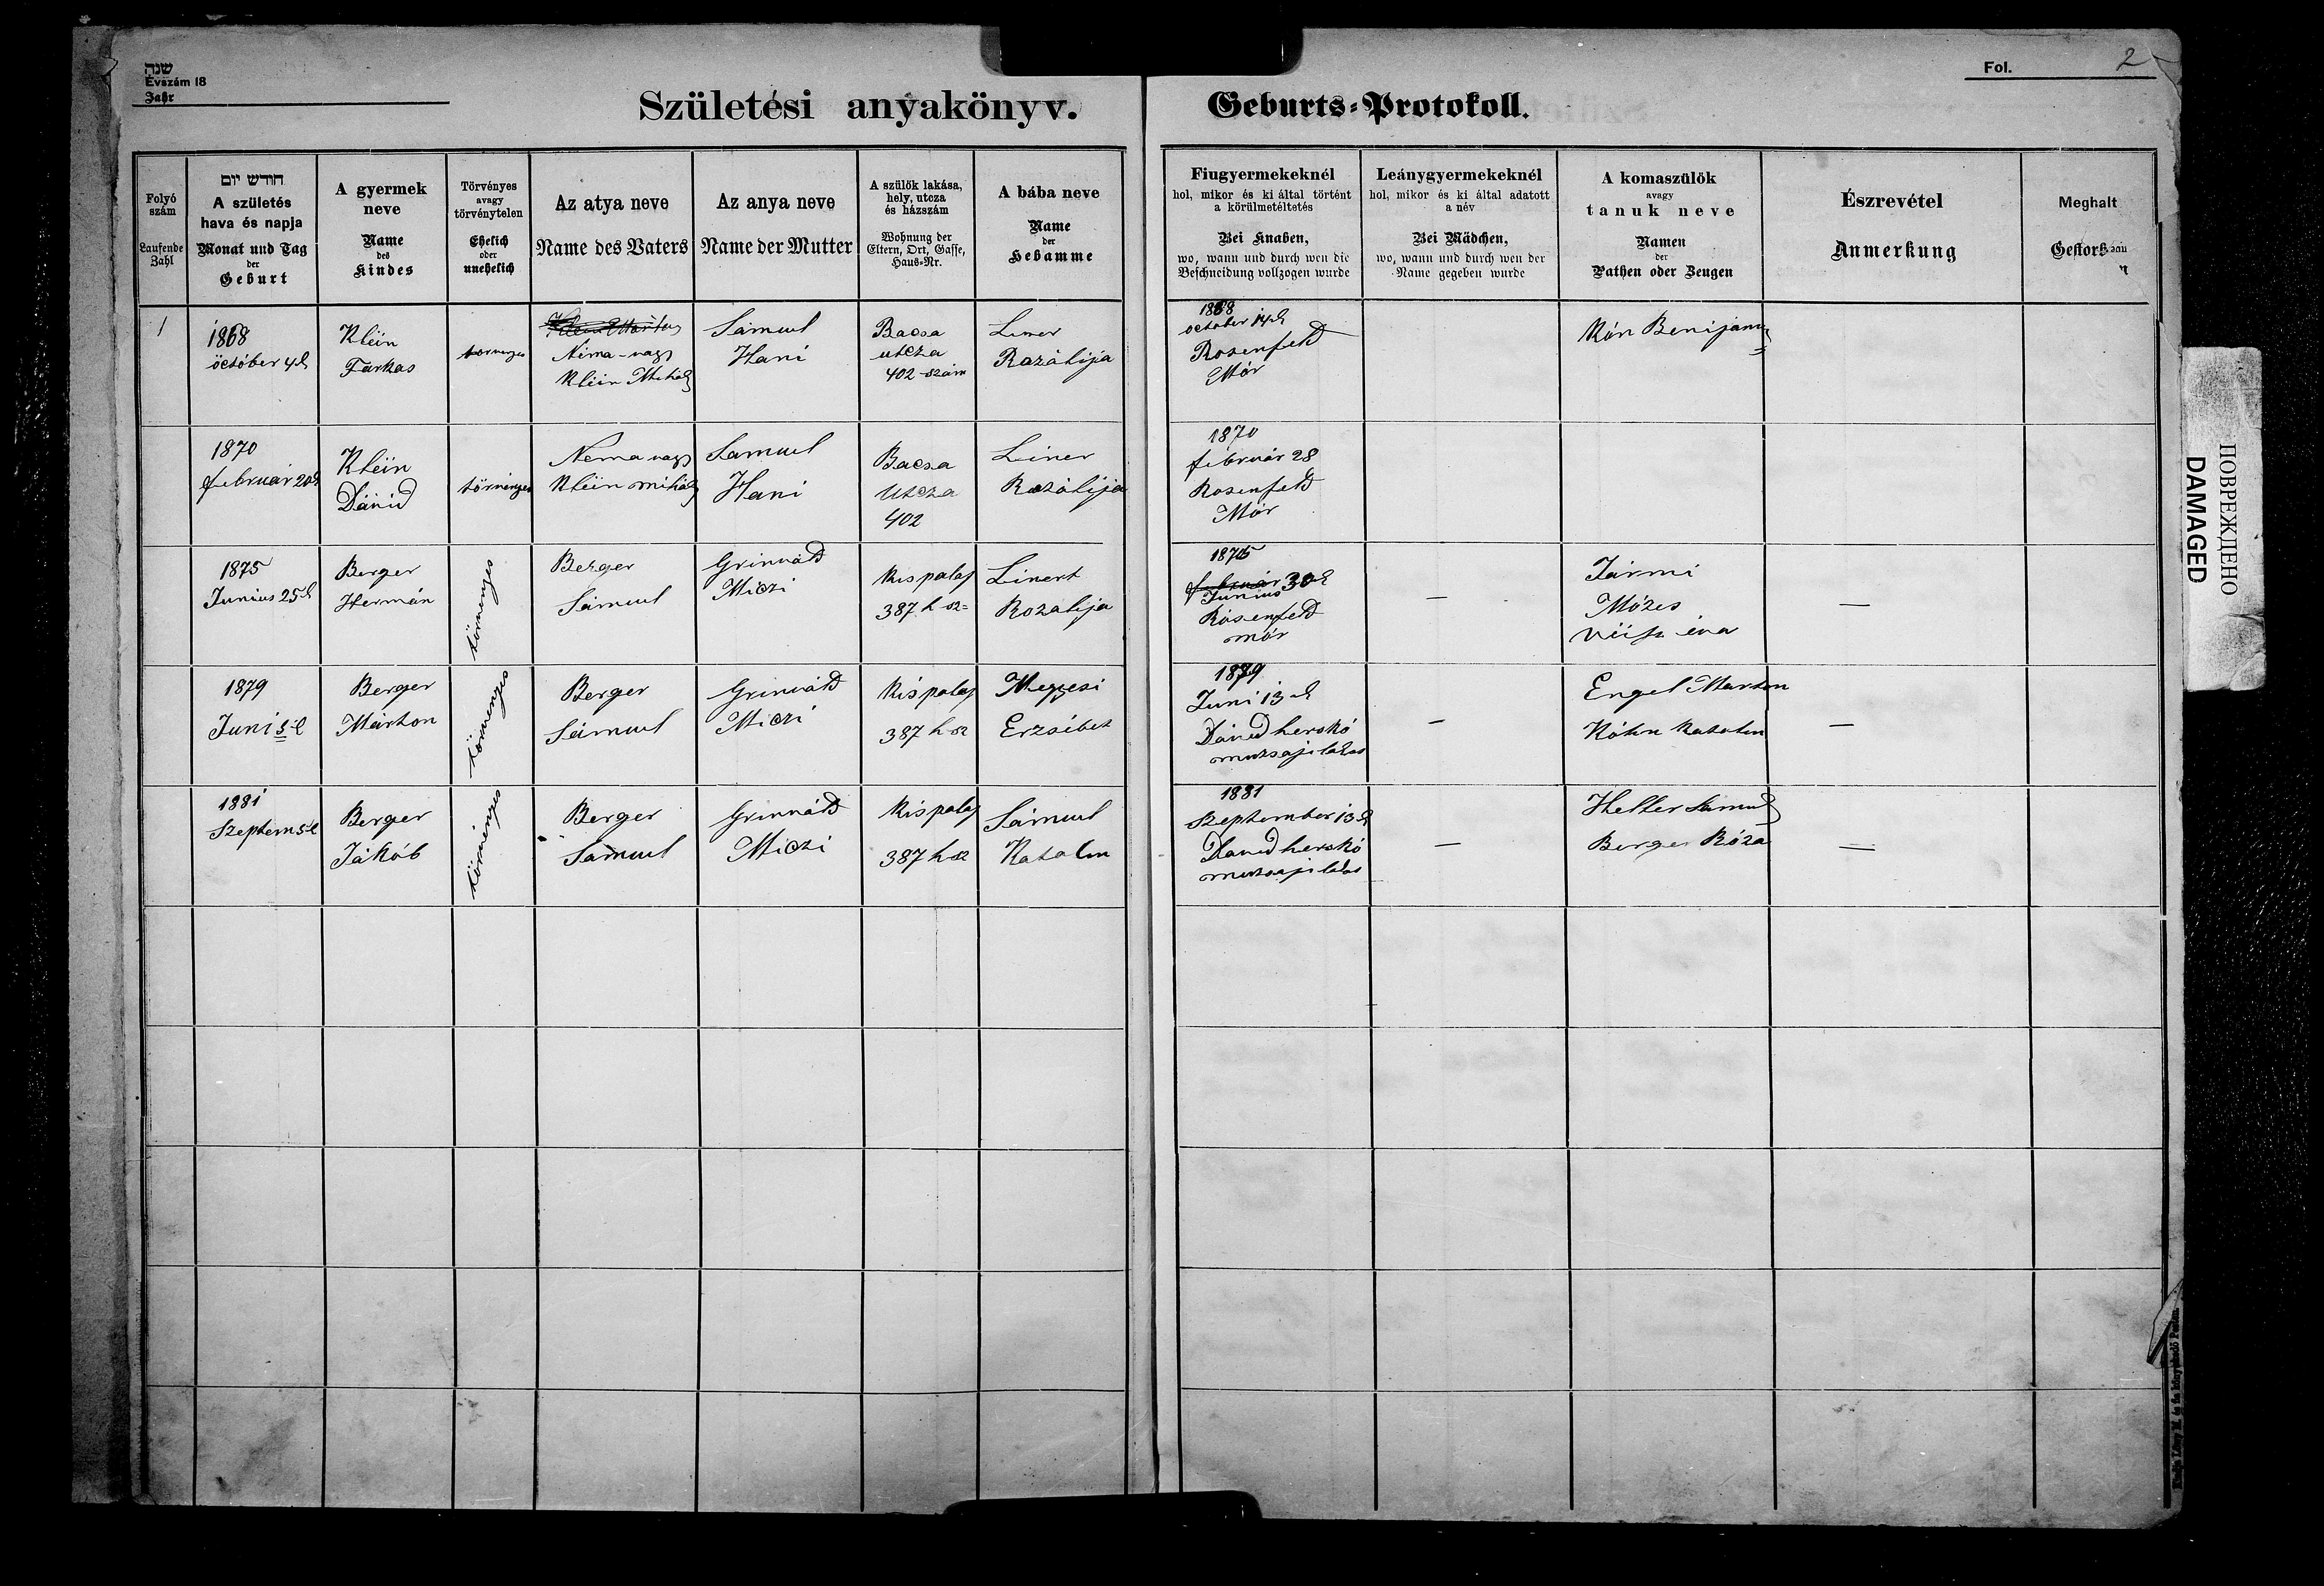 שנה
Évszám 18
Jahr
Fol. 2
Születési anyakönyv.
Geburts-Protokoll.
Folyó
szám
Laufende
Zahl
חודש יום
A születés
hava és napja
Monat und Tag
der
Geburt
A gyermek
neve
Name
des
Kindes
Törvényes
avagy
törvénytelen
Ehelich
oder
unehelich
Az atya neve
Name des Vaters
Az anya neve
Name der Mutter
A szülők lakása,
hely, utcza
és házszám
Wohnung der
Eltern, Ort, Gasse,
Haus-Nr.
A bába neve
Name
der
Hebamme
Fiugyermekeknél
hol, mikor és ki által történt
a körülmetéltetés
Bei Knaben,
wo, wann und durch wen die
Beschneidung vollzogen wurde
Leánygyermekeknél
hol, mikor és ki által adatott
a név
Bei Mädchen,
wo, wann und durch wen der
Name gegeben wurde
A komaszülök
avagy
tanuk neve
Namen
der
Pathen oder Zeugen
Észrevétel
Anmerkung
Meghalt
1
1868
öctóber 4
Klein
Farkas
törvenyes
Néma-nagy
Klein Mihály
Sámuel
Hani
Bacsa
utcza
402-szám
Liner
Razálija
1868
october 14
Rosenfeld
Mór
Kón Benijam
1870
február 20
Klein
Dávid
törvenyes
Nema nagy
Klein mihály
Samuel
Hani
Bacsa
Utcza
402
Liner
Razálija
1870
február 28
Rosenfeld
Mór
1875
Junius 25
Berger
Hermán
törvenyes
Berger
Sámuel
Grinvald
Miczi
Kispalaj
387 h sz=
Linert
Rozalija
1875
február 30
Junius
Rósenfeld
mór
—
Jármi
Mózes
Veisz éva
—
1879
Juni 5
Berger
Márton
törvenyes
Berger
Sámuel
Grinváld
Miczi
Kis palaj
387 h sz
Megyesi
Erzsébet
1879
Juni 13
Dávid herskó
—
Engel Marton
Kóhn Katalin
—
1881
Szeptem 5
Berger
Jákób
törvényes
Berger
Samuel
Grinváld
Miczi
Kispalaj
387 h sz
Sámuel
Katalin
1881
Szeptember 13
David herskó
—
Heller Samuel
Berger Róza
—
ПОВРЕЖДЕНО
DAMAGED